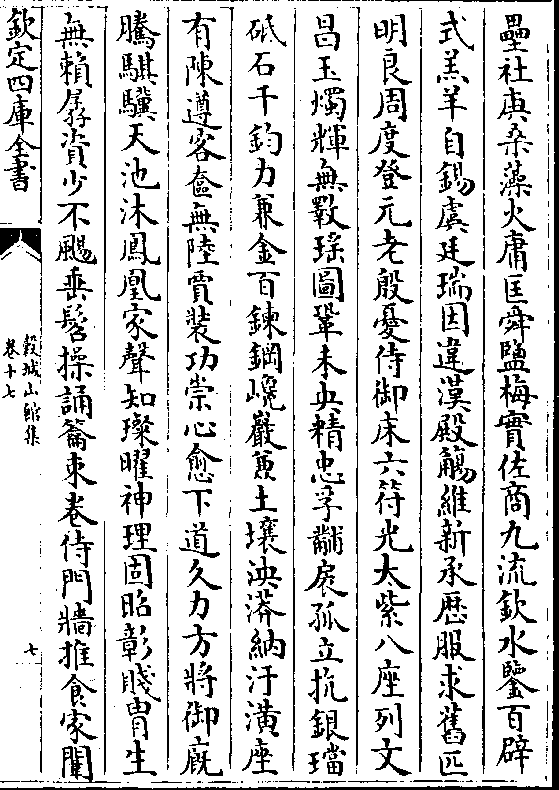 壘社庾桑藻火庸匡舜鹽梅實佐商九流欽水鑒百辟
式羔羊自錫虞廷瑞因違漢殿觴維新承歴服求舊匹
明良周度登元老殷憂侍御床六符光大紫八座列文
昌玉燭輝無斁瑶圖鞏未央精忠孚黼扆孤立抗銀璫
砥石千鈞力兼金百鍊鋼巉巖負土壤泱漭納汙潢座
有陳遵客奩無陸賈裝功崇心愈下道久力方將御廐
騰騏驥天池沐鳳凰家聲知璨曜神理固昭彰賤胄生
無賴孱資少不颺垂髫操誦籥束卷侍門牆推食家闈
欽定四庫全書
穀城山館集
卷十七
七